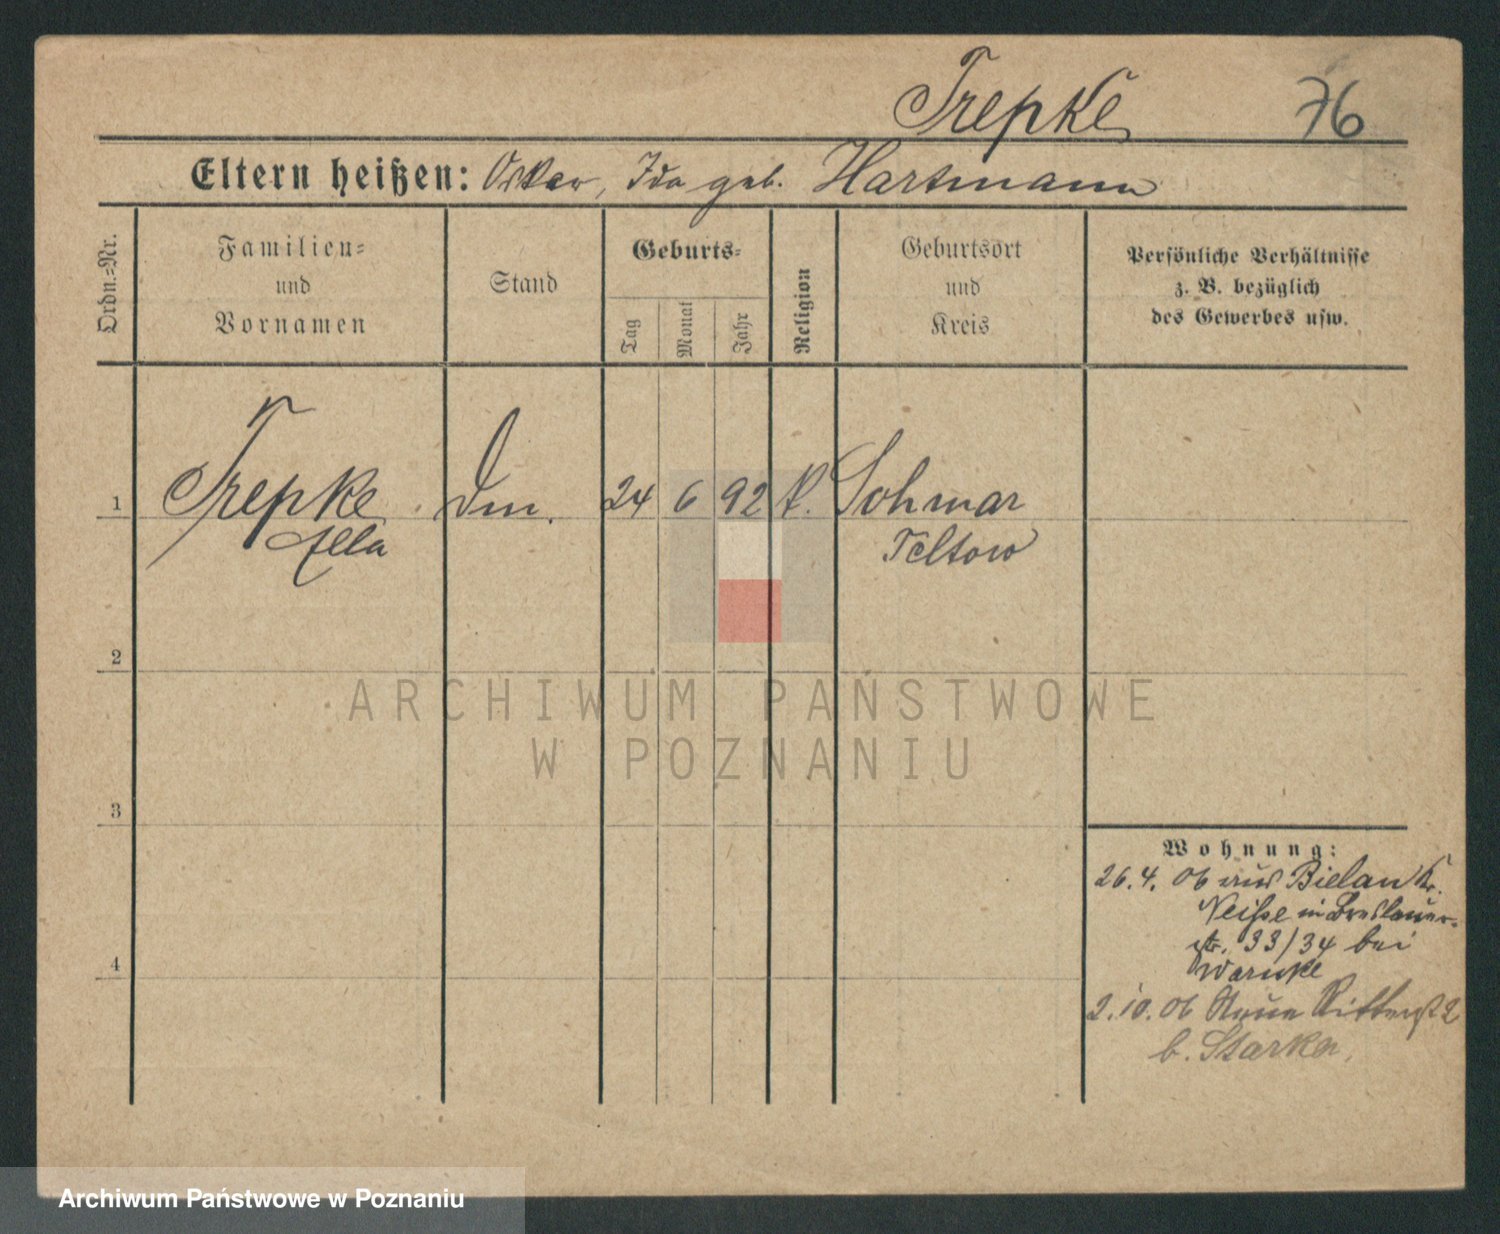 Trepke 76
Eltern heißen: Oskar, Ida geb. Hartmann
Ordn.-Nr.
Familien-
und
Vornamen
Stand
Geburts-
Tag
Monat
Jahr
Religion
Geburtsort
und
Kreis
Persönliche Verhältnisse
z. B. bezüglich
des Gewerbes usw.
1 Trepke 24 6 92 k. Sohmar
Ella Teltow
2
3
4
Wohnung:
26.4. 06 aus Bielau Kr.
Neiße in Breslauer-
str. 33/34 bei
Warnke
2.10.06 Neue Ritterst 2
b. Starke
ARCHIWUM PAŃSTWOWE
W POZNANIU
Archiwum Państwowe w Poznaniu